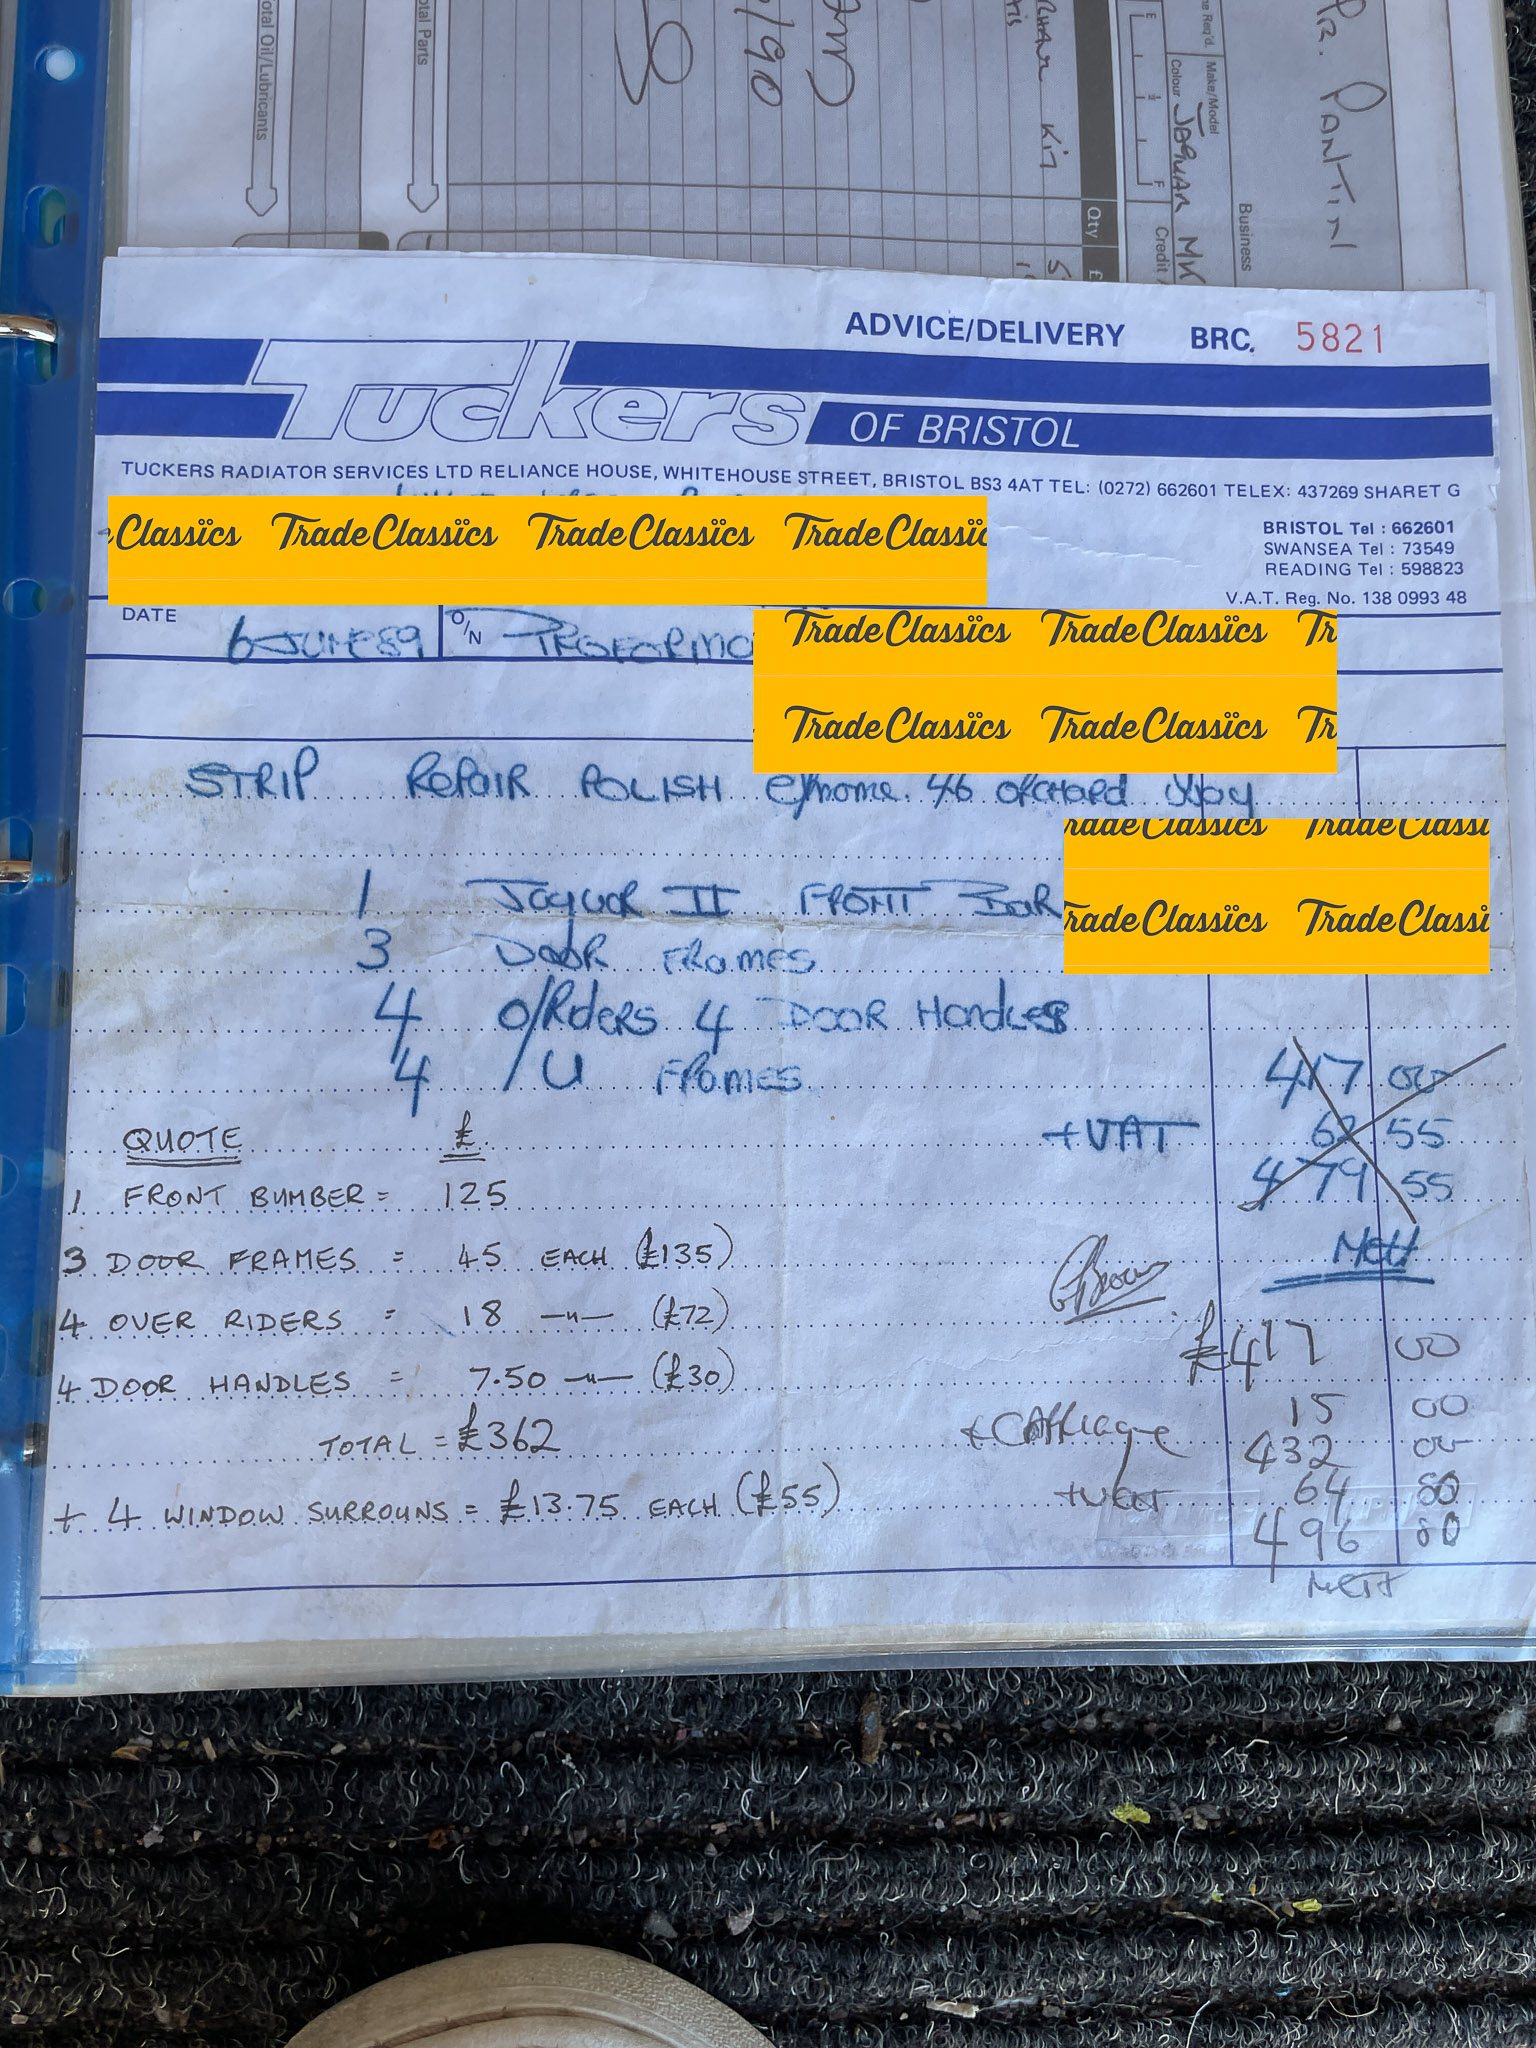 Total Oil/Lubricants
Total Parts
Qty
£
Kit
Make/Model
Colour
JAGUAR MK
Credit
Business
PANTIN
ADVICE/DELIVERY BRC. 5821
Tuckers OF BRISTOL
TUCKERS RADIATOR SERVICES LTD RELIANCE HOUSE, WHITEHOUSE STREET, BRISTOL BS3 4AT TEL: (0272) 662601 TELEX: 437269 SHARET G
Classics TradeClassics TradeClassics TradeClassic
BRISTOL Tel : 662601
SWANSEA Tel : 73549
READING Tel : 598823
V.A.T. Reg. No. 138 0993 48
DATE 6 JUNE 89 O/N PROFORMA
TradeClassics TradeClassics Tr
TradeClassics TradeClassics Tr
STRIP REPAIR POLISH 46 ORCHARD Way
radeClassics TradeClassi
1 JAGUAR II FRONT BAR
radeClassics TradeClassi
3 DOOR FRAMES
4 O/RIDERS 4 DOOR HANDLES
4 /U FRAMES 417 00
+VAT 62 55
479 55
NETT
QUOTE £
1 FRONT BUMBER = 125
3 DOOR FRAMES = 45 EACH (£135)
4 OVER RIDERS = 18 —"— (£72)
£417 00
4 DOOR HANDLES = 7.50 —"— (£30)
15 00
TOTAL = £362 + CARRIAGE 432 00
+ 4 WINDOW SURROUNS = £13.75 EACH (£55) +VAT 64 80
496 80
NETT